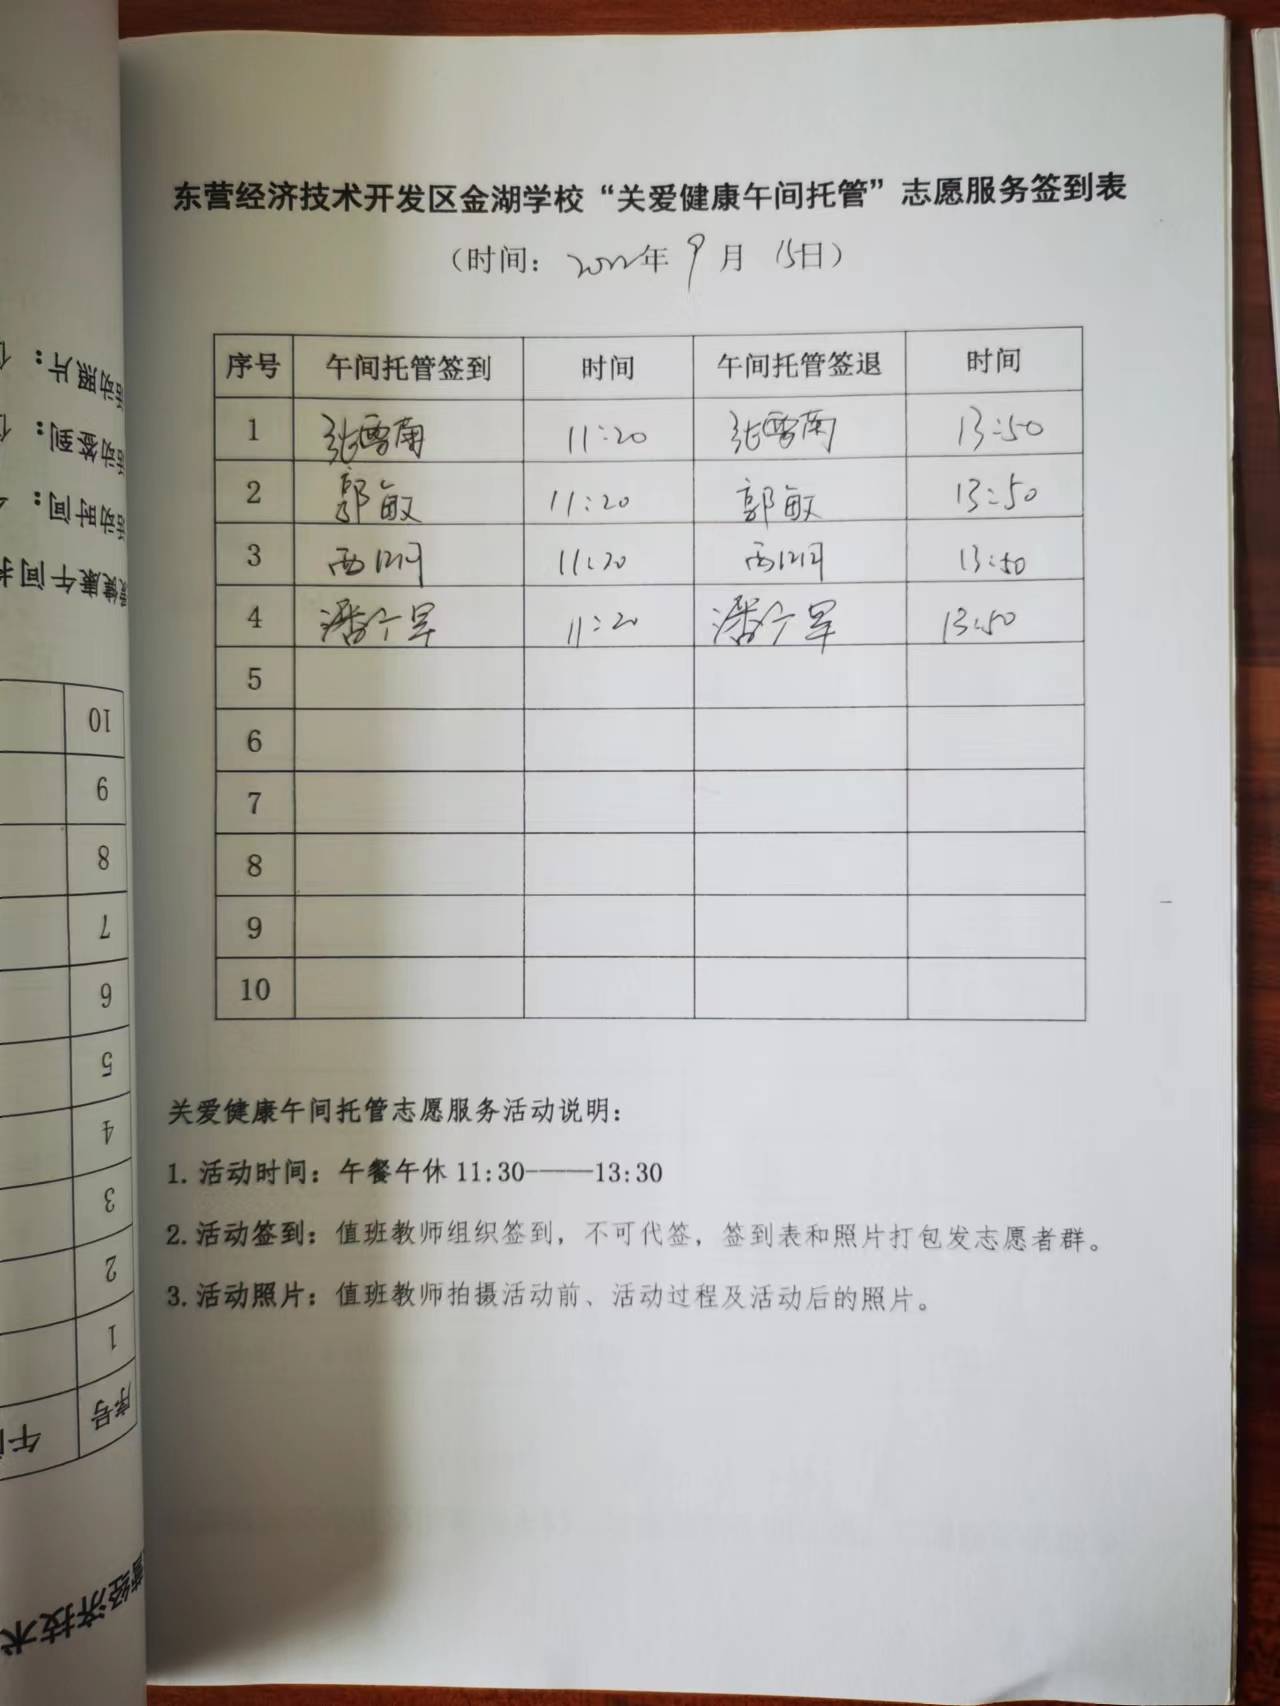 东营经济技术开发区金湖学校“关爱健康午间托管”志愿服务签到表
（时间：2022年 9月 15日）
序号 午间托管签到 时间 午间托管签退 时间
1 张雪南 11:20 张雪南 13:50
2 郭敏 11:20 郭敏 13:50
3 11:20 13:50
4 11:20 13:50
5
6
7
8
9
10
关爱健康午间托管志愿服务活动说明：
1. 活动时间：午餐午休 11:30——13:30
2. 活动签到：值班教师组织签到，不可代签，签到表和照片打包发志愿者群。
3. 活动照片：值班教师拍摄活动前、活动过程及活动后的照片。
活动照片：
活动签到：
活动时间：
健康午间
10
9
8
7
6
5
4
3
2
1
序号
经济技术